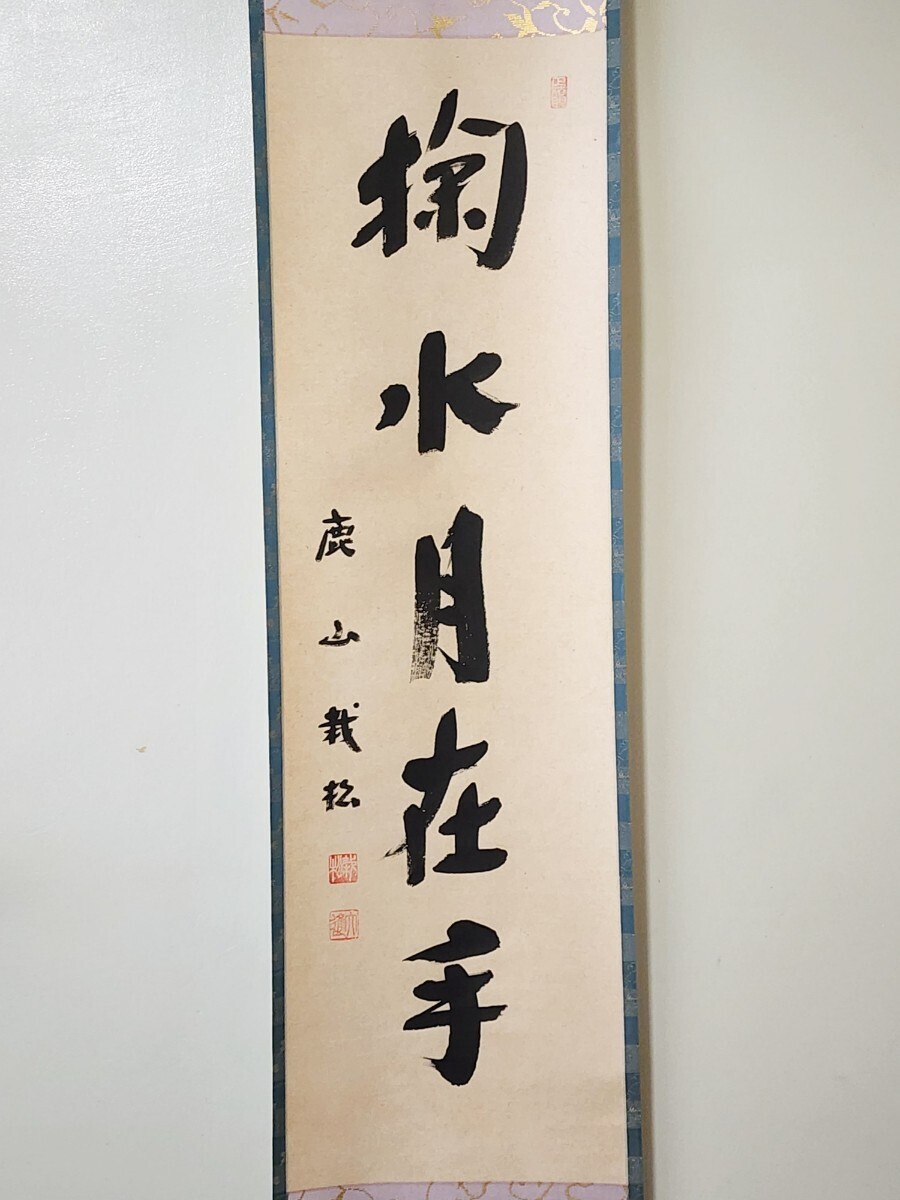 掬水月在手
鹿山栽松